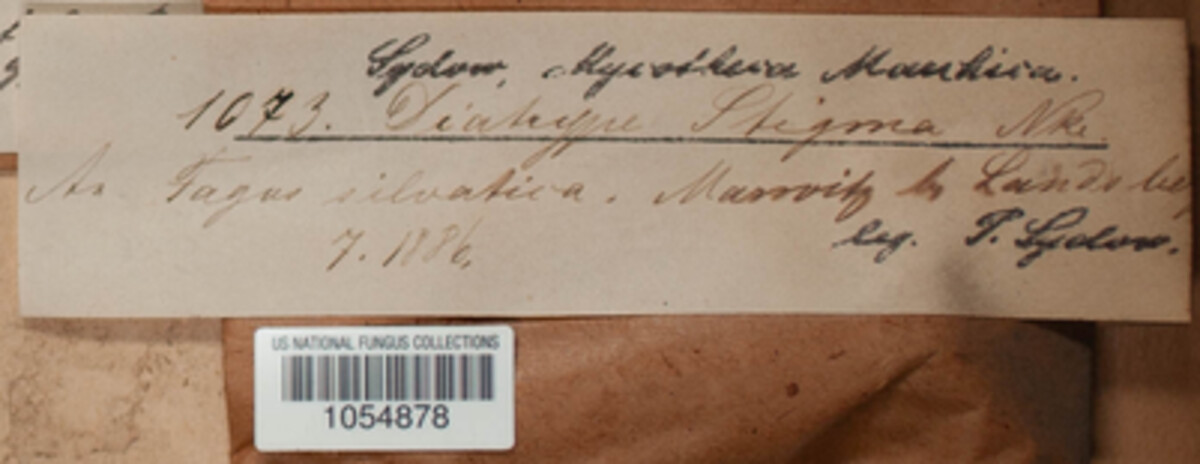 Sydow, Mycotheca Marchica.
1073. Diatrype Stigma Nke.
An Fagus silvatica. Marwitz b. Landsbe
7. 1886.
leg. P. Sydow.
US NATIONAL FUNGUS COLLECTIONS
1054878